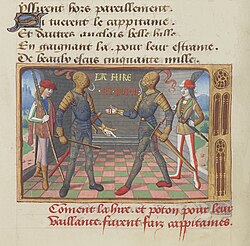 yssirent hors pareillement.
Et tuerent le cappitaine.
Et dautres anglois belle bille
En gaignant la pour leur estraine.
De beaulx escus cinquante mille.
LA HIRE
Coment la hire. et poton pour leur
vaillance furent faiz cappitaines.